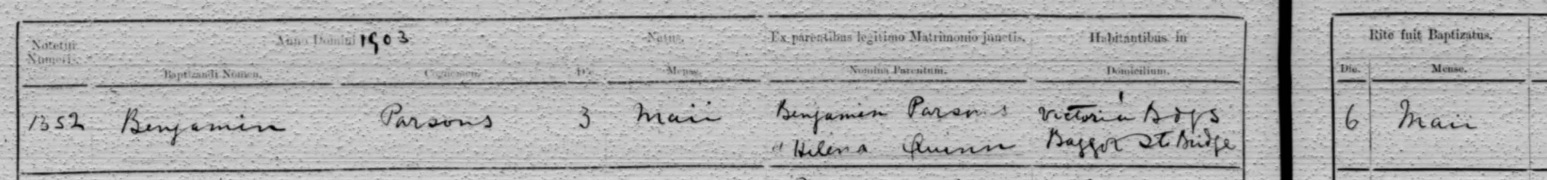 Notetur Numeris. Anno Domini 1903 Natus. Ex parentibus legitimo Matrimonio junctis. Habitantibus in Rite fuit Baptizatus.
Baptizandi Nomen. Cognomen. Die Mense. Nomina Parentum. Domicilium. Die. Mense.
1352 Benjamin Parsons 3 Maii Benjamin Parsons Victoria Bdgs 6 Maii
" Helena Quinn Baggot St Bridge